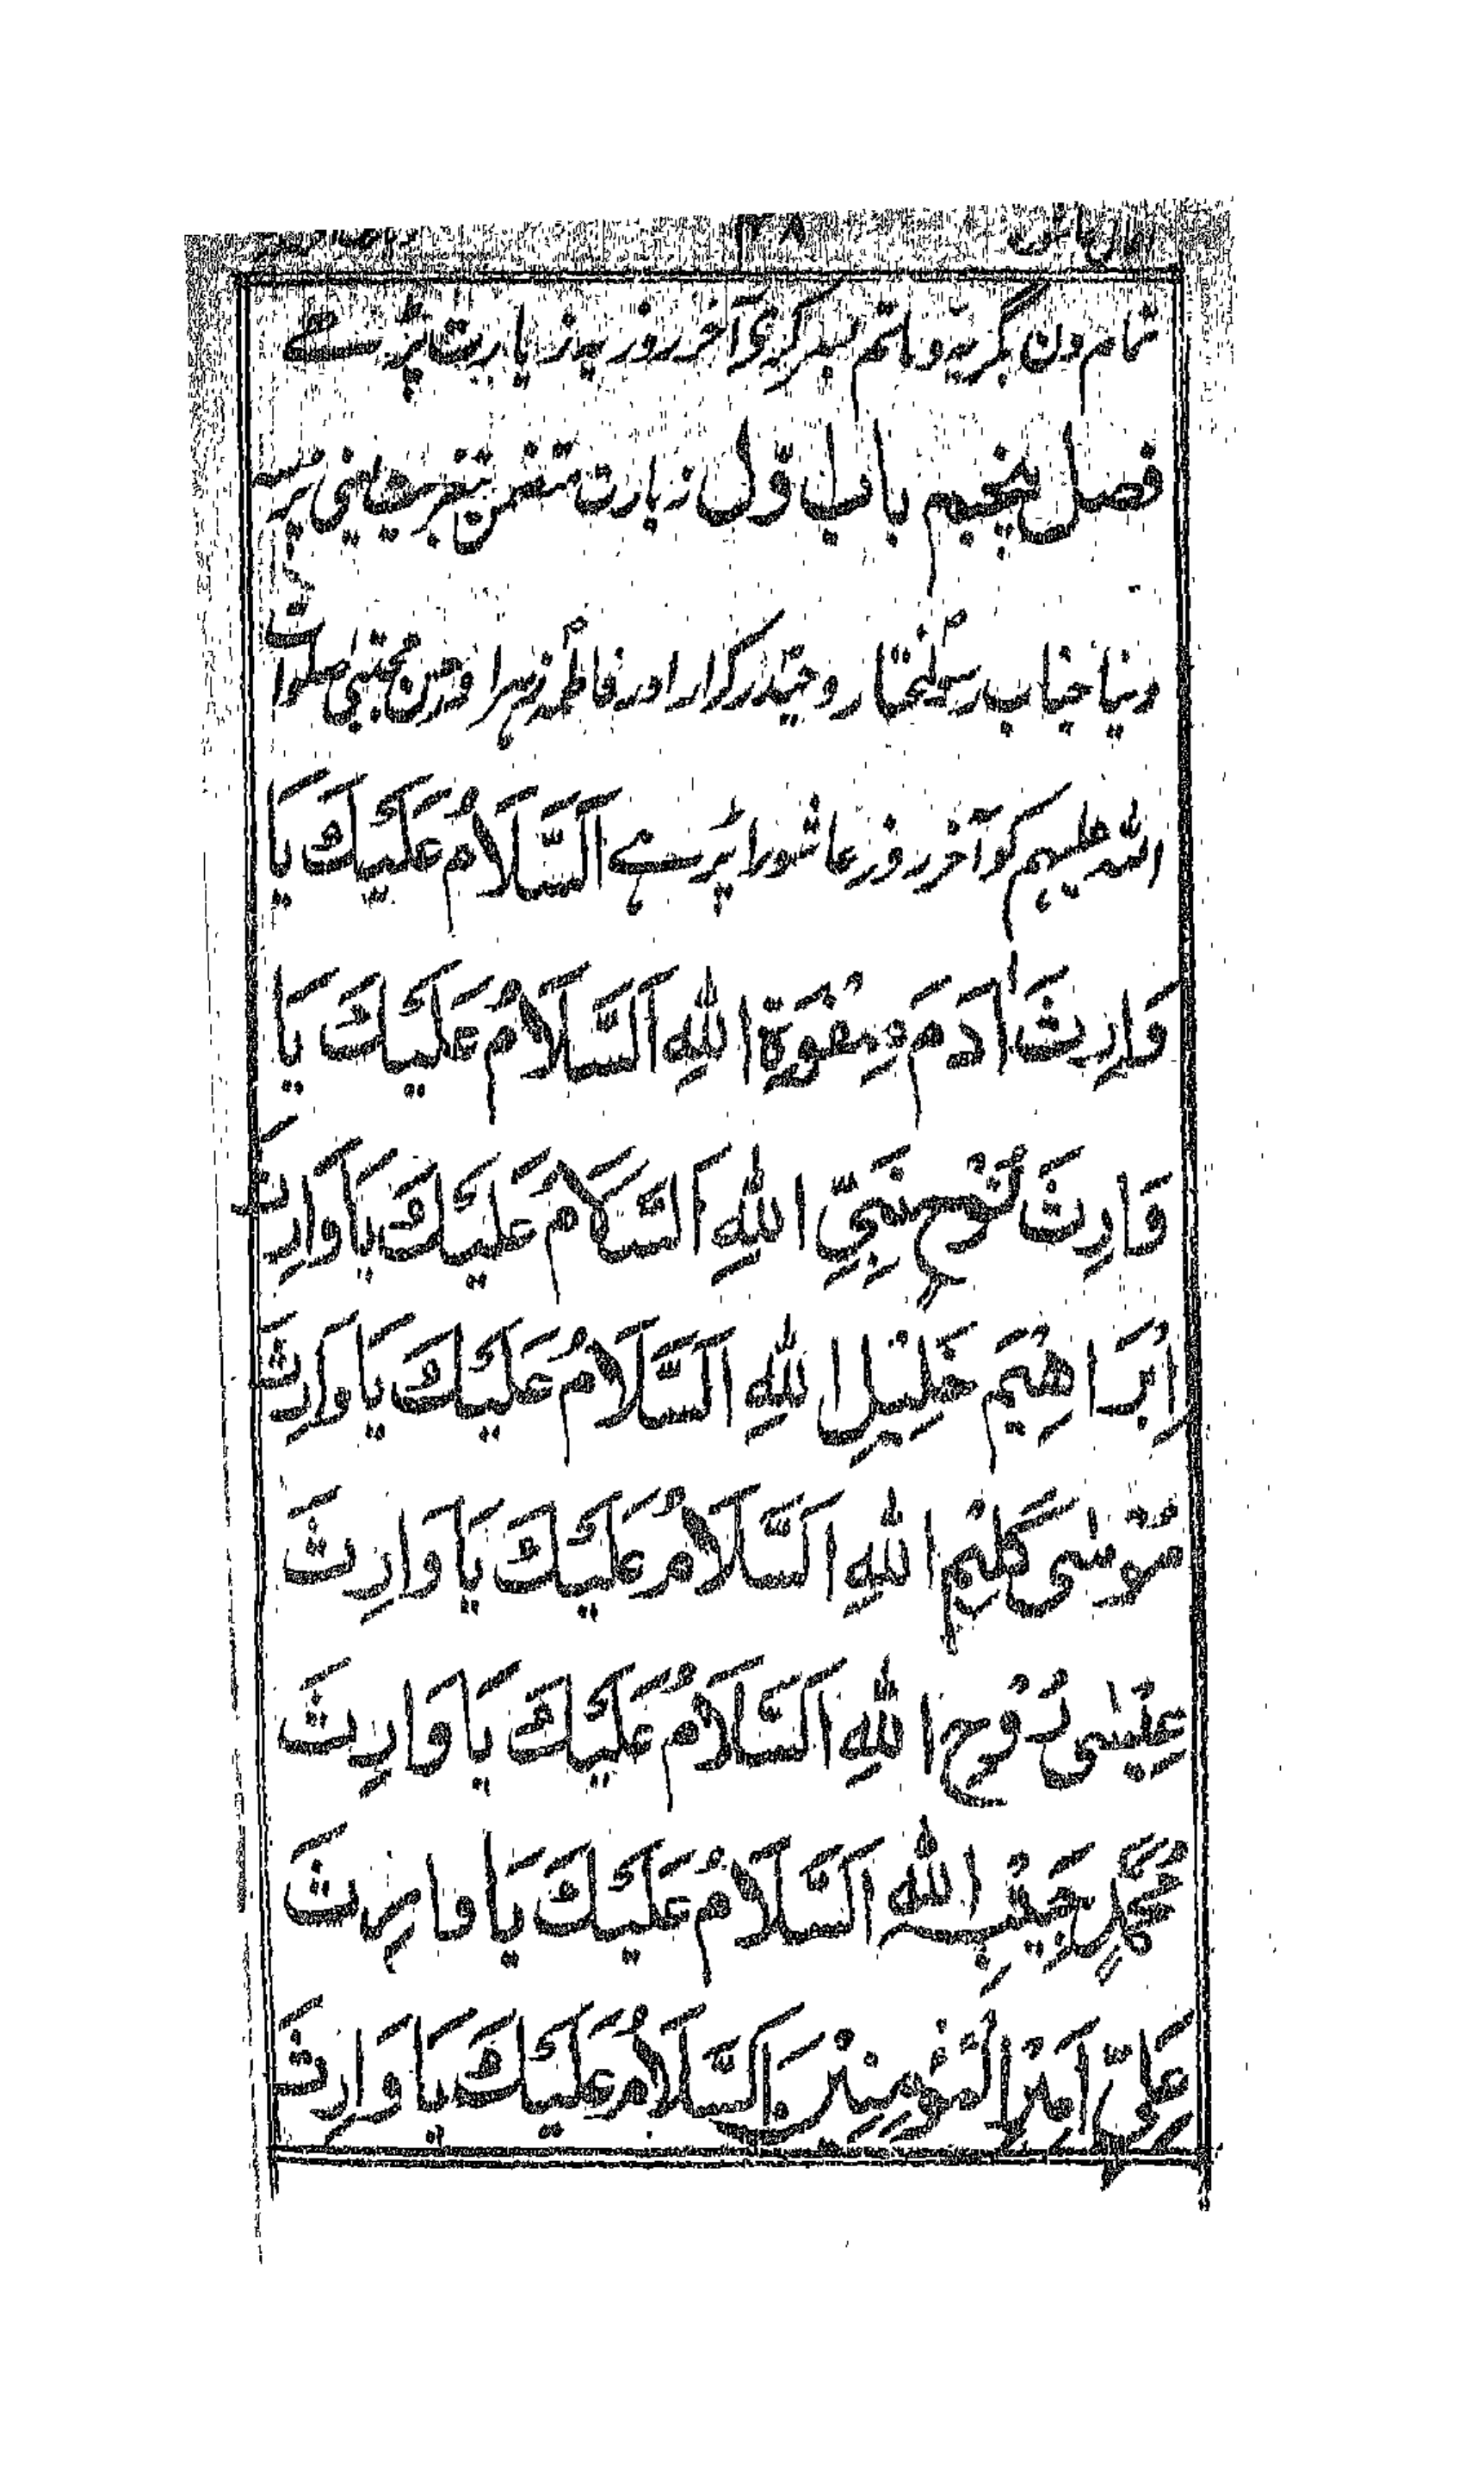 ٣٨
تمام دن بگریہ و ماتم بسر کری آخر روز یہ زیارت پڑہے
فصل پنجیم باب اوّل زیارت متضمن تعزیت یعنی پرسہ
دینا جناب رسولمختار و حیدر کرار اور فاطمہ زہرا و حسن مجتبیٰ صلوات
اللہ علیہم کو آخر روز عاشورا پڑہے اَلسَّلَامُ عَلَيْكَ يَا
وَارِثَ اٰدَمَ صِفْوَةِ اللهِ اَلسَّلَامُ عَلَيْكَ يَا
وَارِثَ نُوْحٍ نَبِيِّ اللهِ اَلسَّلَامُ عَلَيْكَ يَا وَارِثَ
اِبْرَاهِيْمَ خَلِيْلِ اللهِ اَلسَّلَامُ عَلَيْكَ يَا وَارِثَ
مُوْسٰى كَلِيْمِ اللهِ اَلسَّلَامُ عَلَيْكَ يَا وَارِثَ
عِيْسٰى رُوْحِ اللهِ اَلسَّلَامُ عَلَيْكَ يَا وَارِثَ
مُحَمَّدٍ حَبِيْبِ اللهِ اَلسَّلَامُ عَلَيْكَ يَا وارِثَ
عَلِيٍّ اَمِيْرِ الْمُؤْمِنِيْنَ اَلسَّلَامُ عَلَيْكَ يَا وَارِثَ